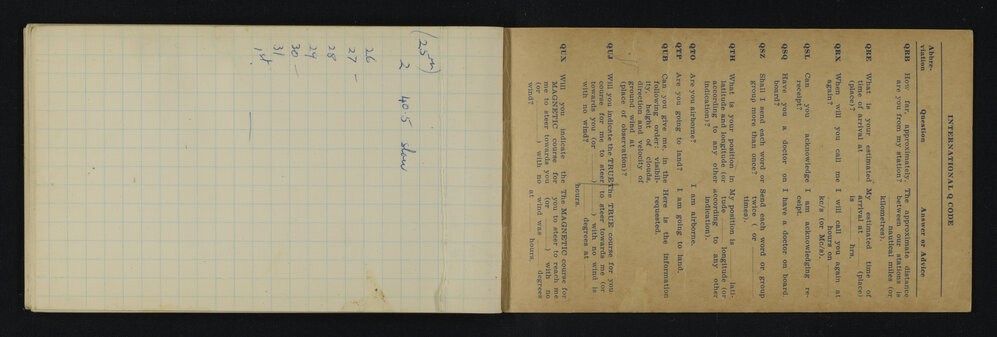 (25th)
2 40.5 slow
26
27 —
28
29
30 —
31
1st —
INTERNATIONAL Q CODE
Abbreviation Question Answer or Advice
QRB How far, approximately, are you from my station? The approximate distance between our stations is ........ nautical miles (or ........ kilometres).
QRE What is your estimated time of arrival at ........ (place)? My estimated time of arrival at ........ (place) is ........ hrs.
QRX When will you call me again? I will call you again at ........ hours on ........ kc/s (or Mc/s).
QSL Can you acknowledge receipt? I am acknowledging receipt.
QSQ Have you a doctor on board? I have a doctor on board.
QSZ Shall I send each word or group more than once? Send each word or group twice (or ........ times).
QTH What is your position in latitude and longitude (or according to any other indication)? My position is ........ latitude ........ longitude (or according to any other indication).
QTO Are you airborne? I am airborne.
QTP Are you going to land? I am going to land.
QUB Can you give me, in the following order: visibility, height of clouds, direction and velocity of ground wind at ........ (place of observation)? Here is the information requested.
QUJ Will you indicate the TRUE course for me to steer towards you (or ........) with no wind? The TRUE course for you to steer towards me (or ........) with no wind is ........ degrees at ........ hours.
QUX Will you indicate the MAGNETIC course for me to steer towards you (or ........) with no wind? The MAGNETIC course for you to steer to reach me (or ........) with no wind was ........ degrees at ........ hours.